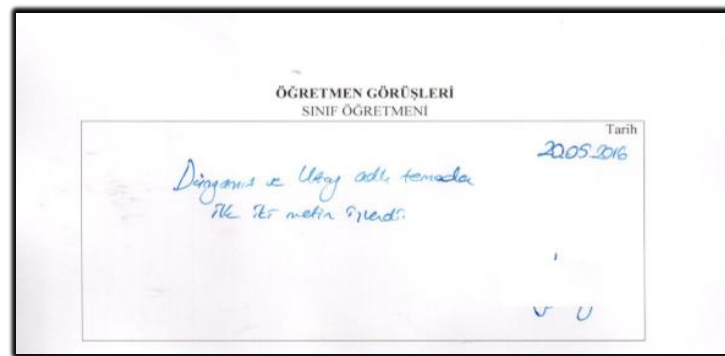 ÖĞRETMEN GÖRÜŞLERİ
SINIF ÖĞRETMENİ
Tarih
20.05.2016
Dünyamız ve Uzay adlı temadan
ilk iki metin işlendi.